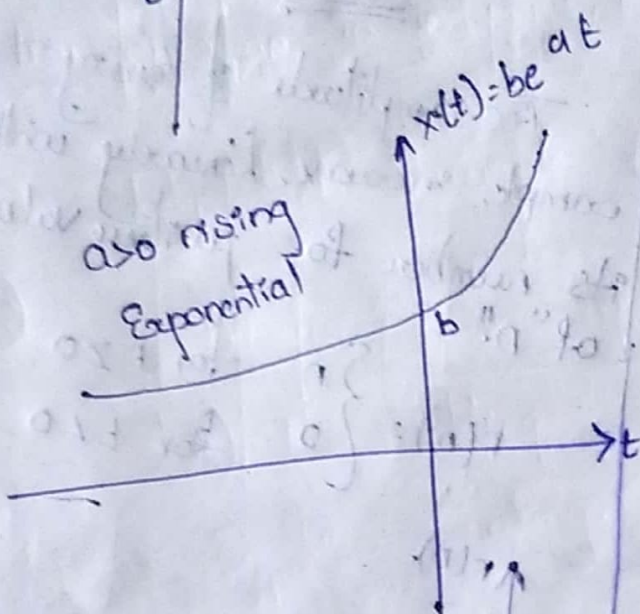 x(t)=be^at
a>0 rising
Exponential
b
t